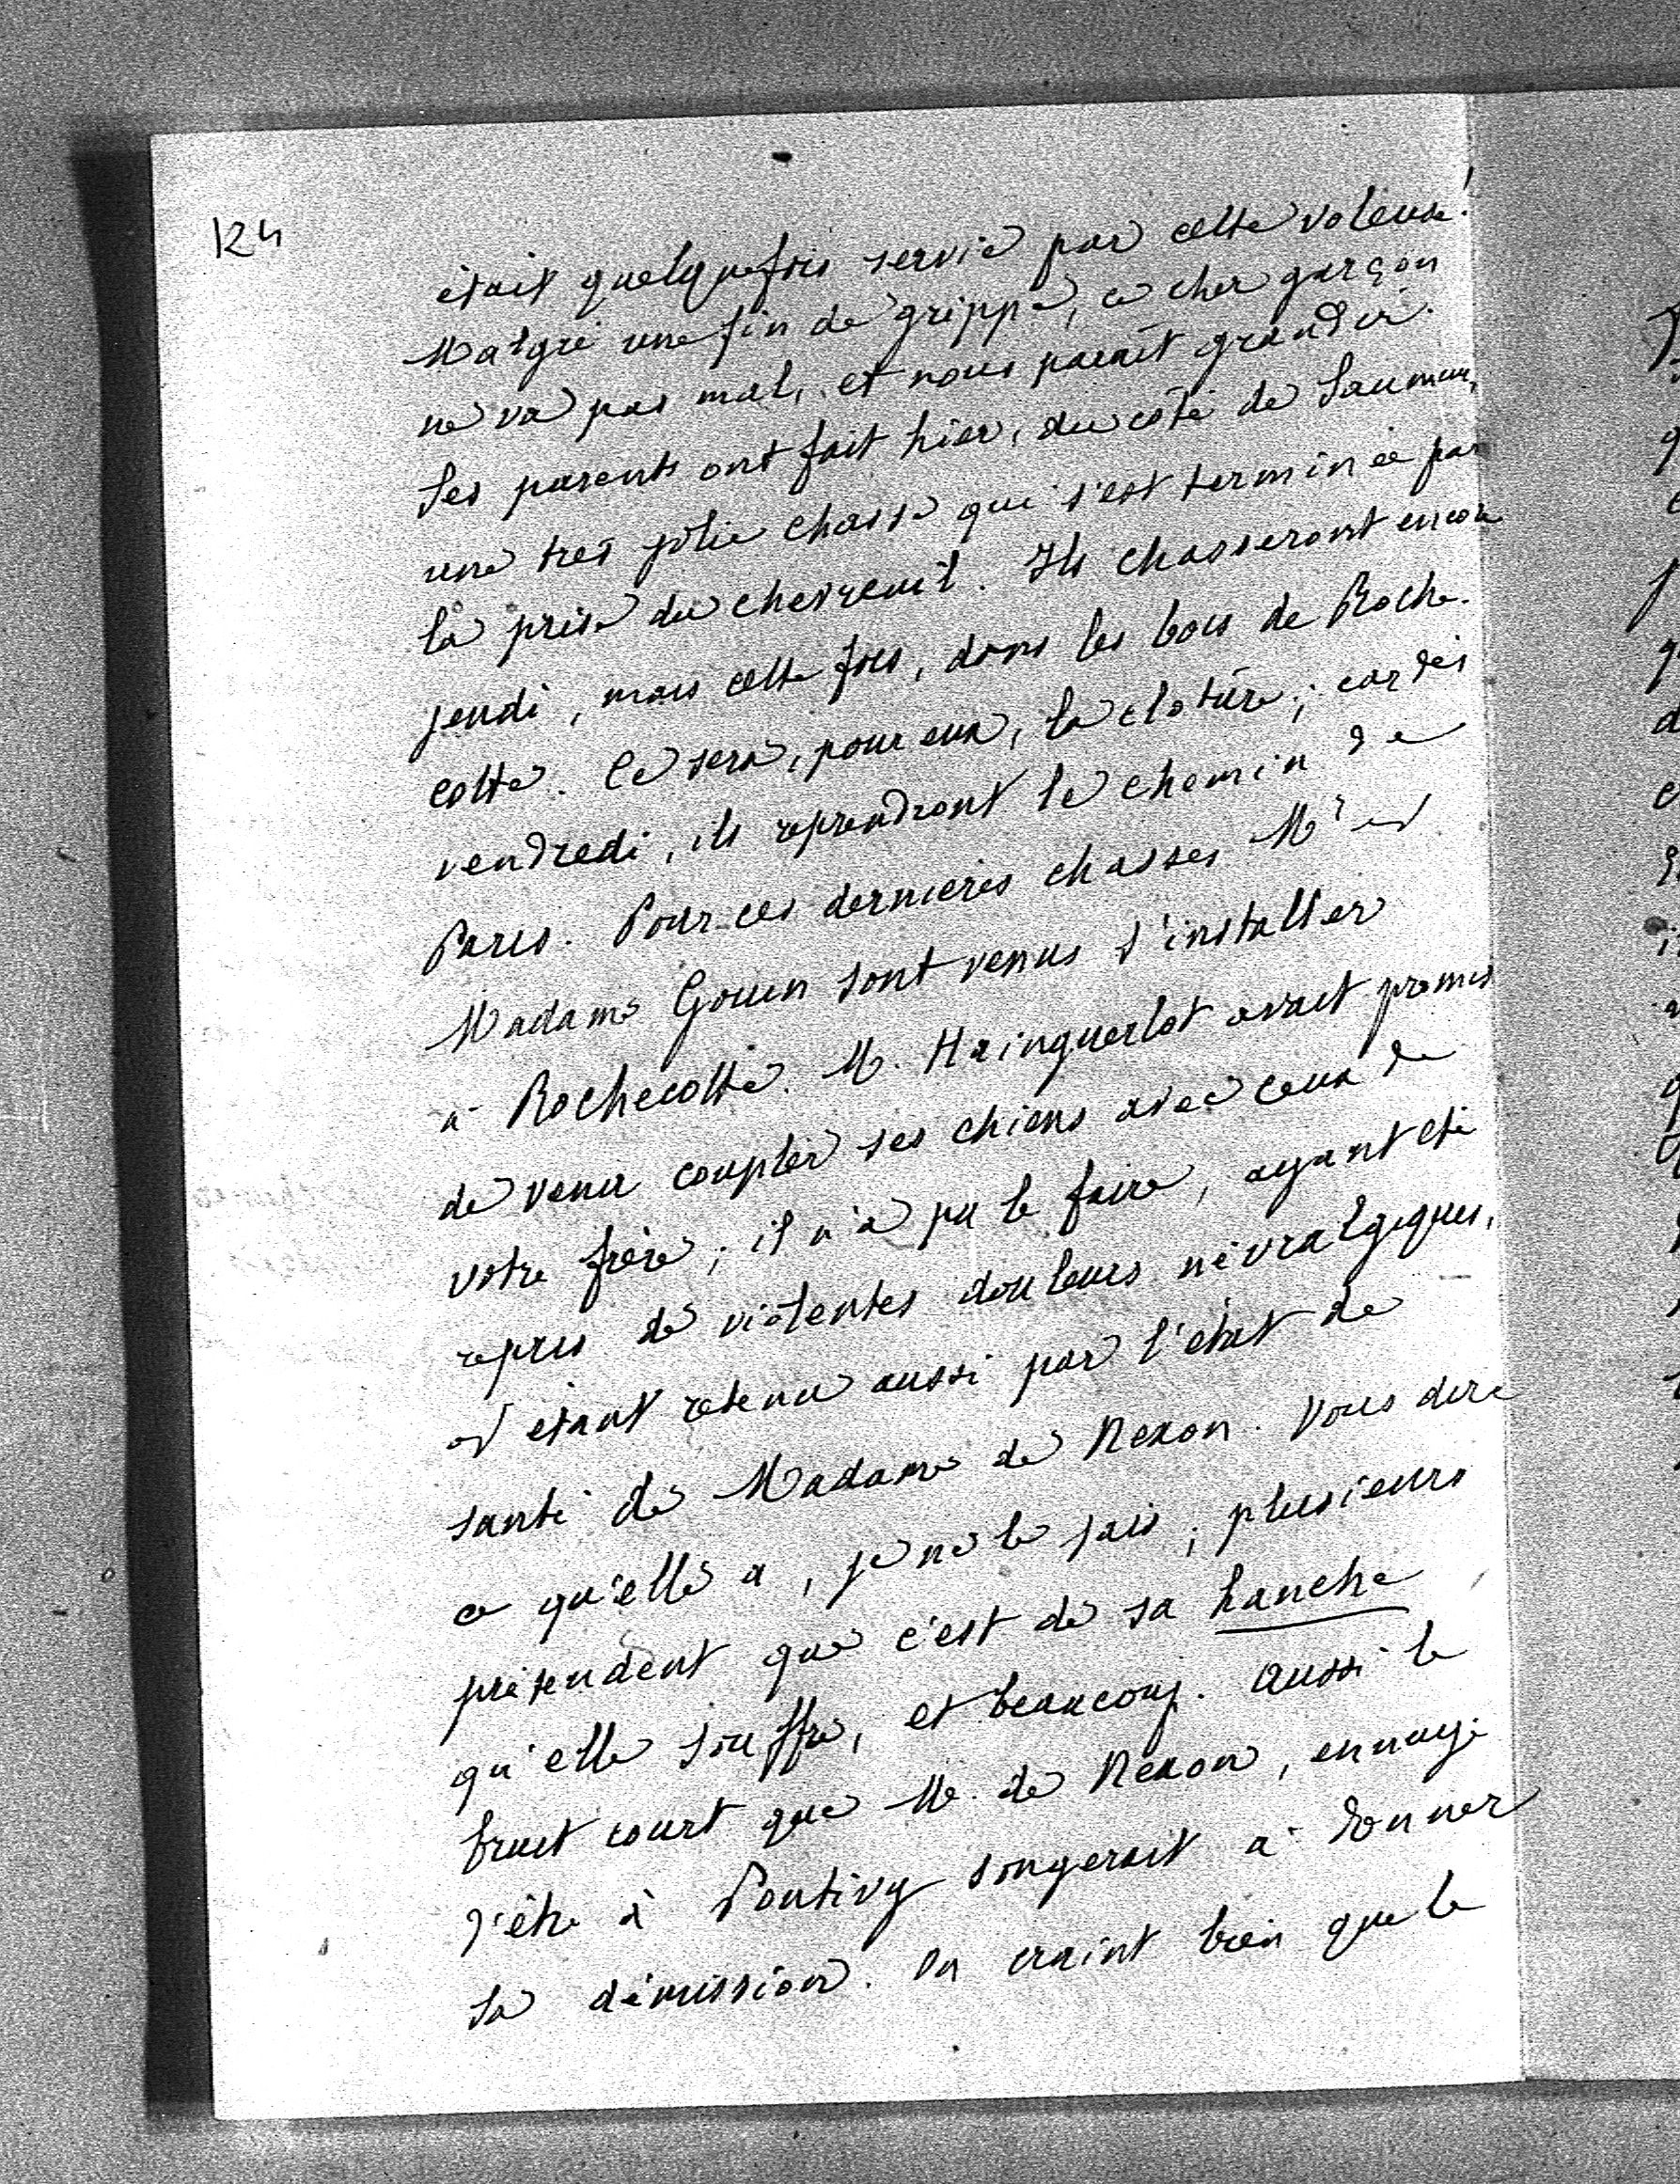 124
était quelquefois servie par cette voleuse!
Malgré une fin de grippe, ce cher garçon
ne va pas mal, et nous paraît grandir.
Ses parents ont fait hier, du côté de Saumur,
une très jolie chasse qui s'est terminée par
la prise du chevreuil. Ils chasseront encore
jeudi, mais cette fois, dans les bois de Roche-
cotte. Ce sera, pour eux, la clôture; car dès
vendredi, ils reprendront le chemin de
Paris. Pour ces dernières chasses Mr et
Madame Gouin sont venus s'installer
à Rochecotte. M. Hainguerlot avait promis
de venir coupler ses chiens avec ceux de
votre frère; il n'a pu le faire, ayant été
repris de violentes douleurs névralgiques,
et étant retenu aussi par l'état de
santé de Madame de Nexon. Vous dire
ce qu'elle a, je ne le sais; plusieurs
prétendent que c'est de sa hanche
qu'elle souffre, et beaucoup. Aussi le
bruit court que M. de Nexon, ennuyé
d'être à Pontivy songerait à donner
sa démission. On craint bien que le